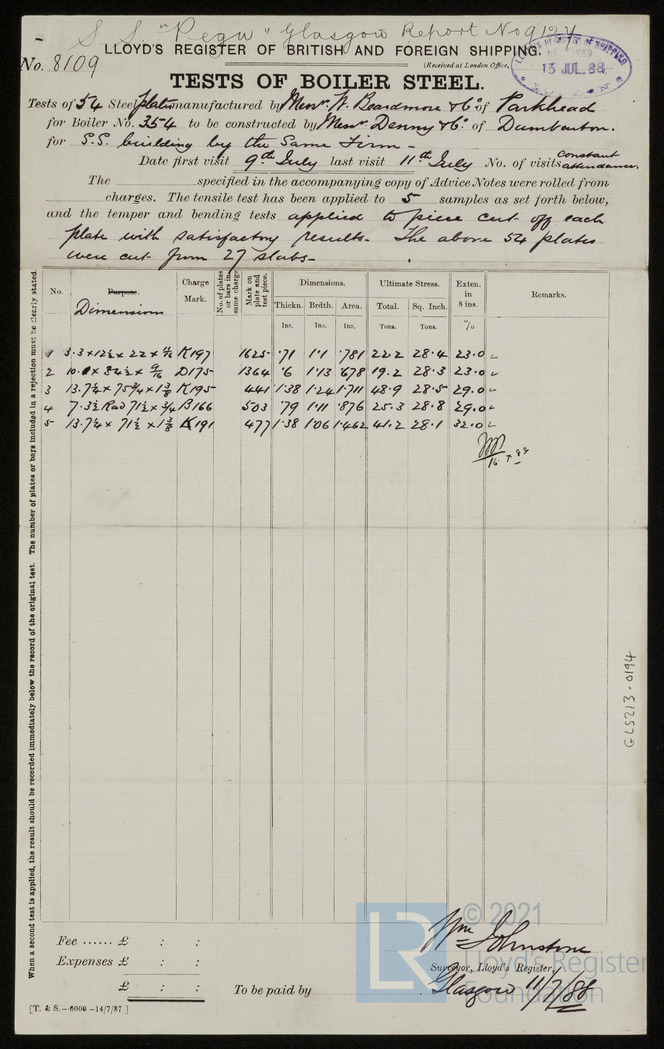 S. S. "Pegu" Glasgow Report No 9124
LLOYD'S REGISTER OF BRITISH AND FOREIGN SHIPPING.
No. 8109
(Received at London Office,
13 JUL. 88
TESTS OF BOILER STEEL.
Tests of 54 Steel plates manufactured by Messrs. W. Beardmore & Co. of Parkhead
for Boiler No. 354 to be constructed by Messrs. Denny & Co. of Dumbarton.
for S.S. building by the Same Firm -
Date first visit 9th July last visit 11th July No. of visits Constant attendance.
The specified in the accompanying copy of Advice Notes were rolled from
charges. The tensile test has been applied to 5 samples as set forth below,
and the temper and bending tests applied to piece cut off each
plate with satisfactory results. The above 54 plates
were cut from 27 slabs.
No. Purpose. Dimensions Charge Mark. No. of plates or bars in same charge Mark on plate and test piece. Dimensions. Ultimate Stress. Exten. in 8 ins. Remarks.
Thickn. Brdth. Area. Total. Sq. Inch.
Ins. Ins. Ins. Tons. Tons. %
1 K197 1625 .71 1.1 .781 22.2 28.4 23.0
2 D175 1364 .6 1.13 .678 19.2 28.3 23.0
3 13.7¼ × 75¾ × 1⅜ K195 441 1.38 1.24 1.711 48.9 28.5 29.0
4 7.3½ Rad 71½ × ¾ B166 503 .79 1.11 .876 25.3 28.8 29.0
5 13.7¼ × 71½ × 1⅜ K191 477 1.38 1.06 1.462 41.2 28.1 32.0
16.7.88
When a second test is applied, the result should be recorded immediately below the record of the original test. The number of plates or bars included in a rejection must be clearly stated.
GLS213-0194
Fee ...... £ : :
Expenses £ : :
£ : :
To be paid by
Wm Johnstone
Surveyor, Lloyd's Register,
Glasgow 11/7/88
[T. & S.—6000—14/7/87]
LR
© 2021
Lloyd's Register
Foundation